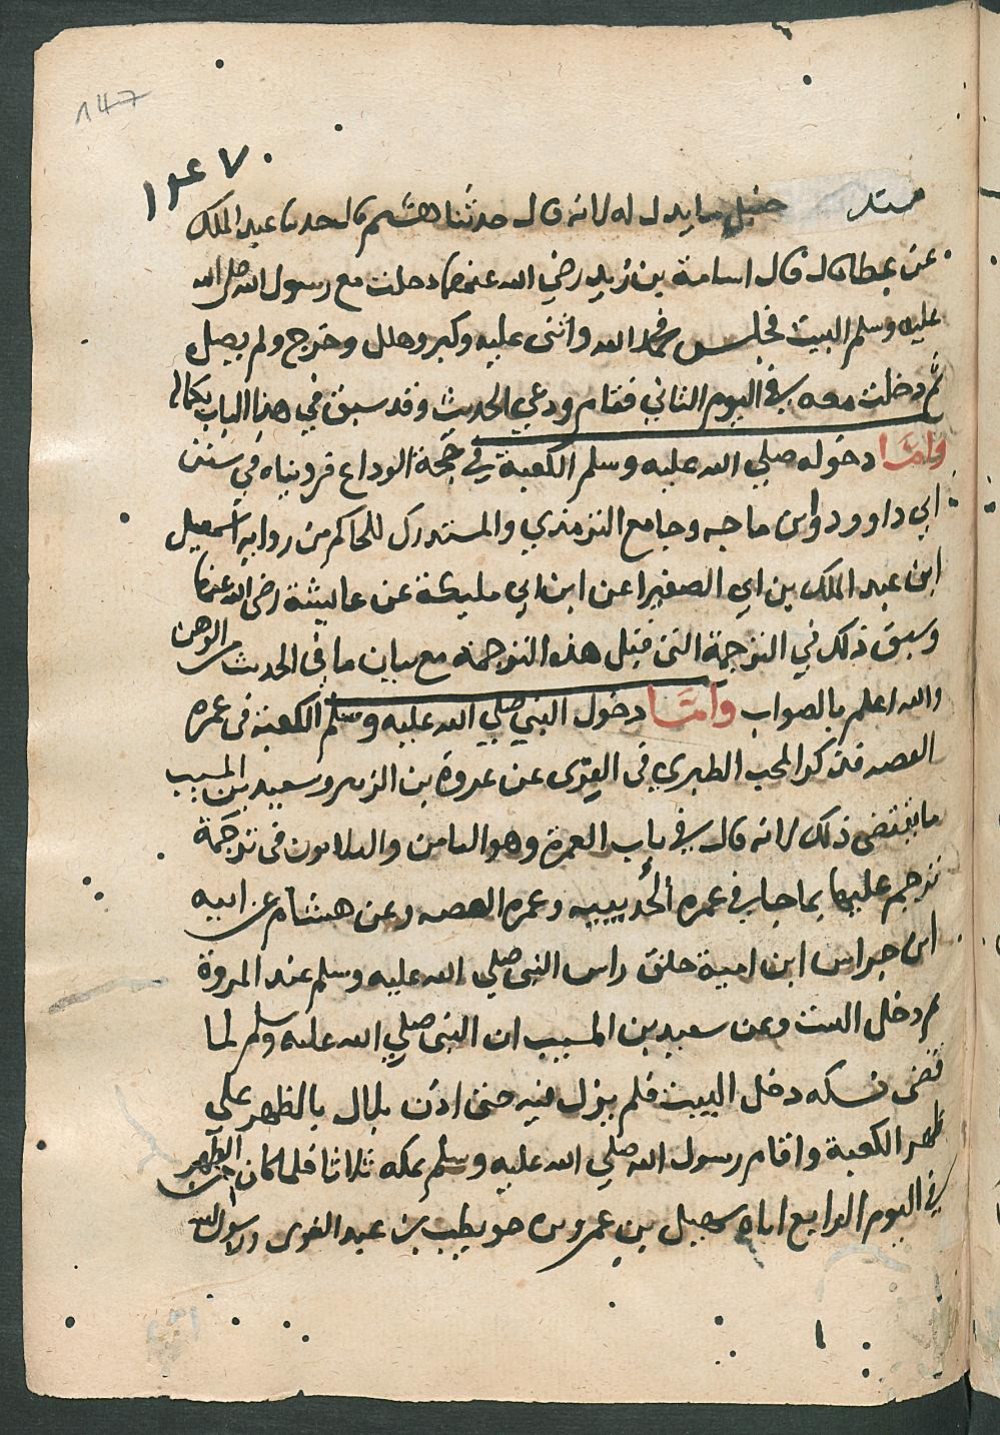 147
١٤٧
مسند حنبل ما يدل له لانه قال حدثنا هشيم قال حدثنا عبد الملك
عن عطا قال قال اسامة بن زيد رضي الله عنهما دخلت مع رسول الله صلى الله
عليه وسلم البيت فجلس فحمد الله واثنى عليه وكبر وهلل وخرج ولم يصل
ثم دخلت معه في اليوم الثاني فقام ودعي الحديث وقد سبق في هذا الباب بكماله
وامّا دخوله صلي الله عليه وسلم الكعبة في حجة الوداع فرويناه في سنن
ابي داوود وابن ماجه وجامع الترمذي والمستدرك للحاكم من رواية اسمعيل
ابن عبد الملك بن ابي الصفيرا عن ابن ابي مليكة عن عايشة رضى الله عنها
وسبق ذلك في الترجمة التي قبل هذه الترجمة مع بيان ما في الحديث من الوهن
والله اعلم بالصواب وامّا دخول النبي صلي الله عليه وسلم الكعبة في عمرة
القصه فذكر المحب الطبري في القرى عن عروة بن الزبير وسعيد بن المسيب
ما يقتضى ذلك لانه قال في باب العمرة وهو الثامن والثلاثون في ترجمة
ترجم عليها بما جا في عمرة الحديبيه وعمرة القصه وعن هشام عن ابيه
ان خراش ابن امية حلق راس النبي صلي الله عليه وسلم عند المروة
ثم دخل البيت وعن سعيد بن المسيب ان النبى صلي الله عليه وسلم لما
قضى نسكه دخل البيت فلم يزل فيه حتى اذن بلال بالظهر علي
ظهر الكعبة واقام رسول الله صلي الله عليه وسلم بمكه ثلاثا فلما كان الظهر
في اليوم الرابع اتاه سهيل بن عمرو حويطب بن عبد العزى ورسول الله